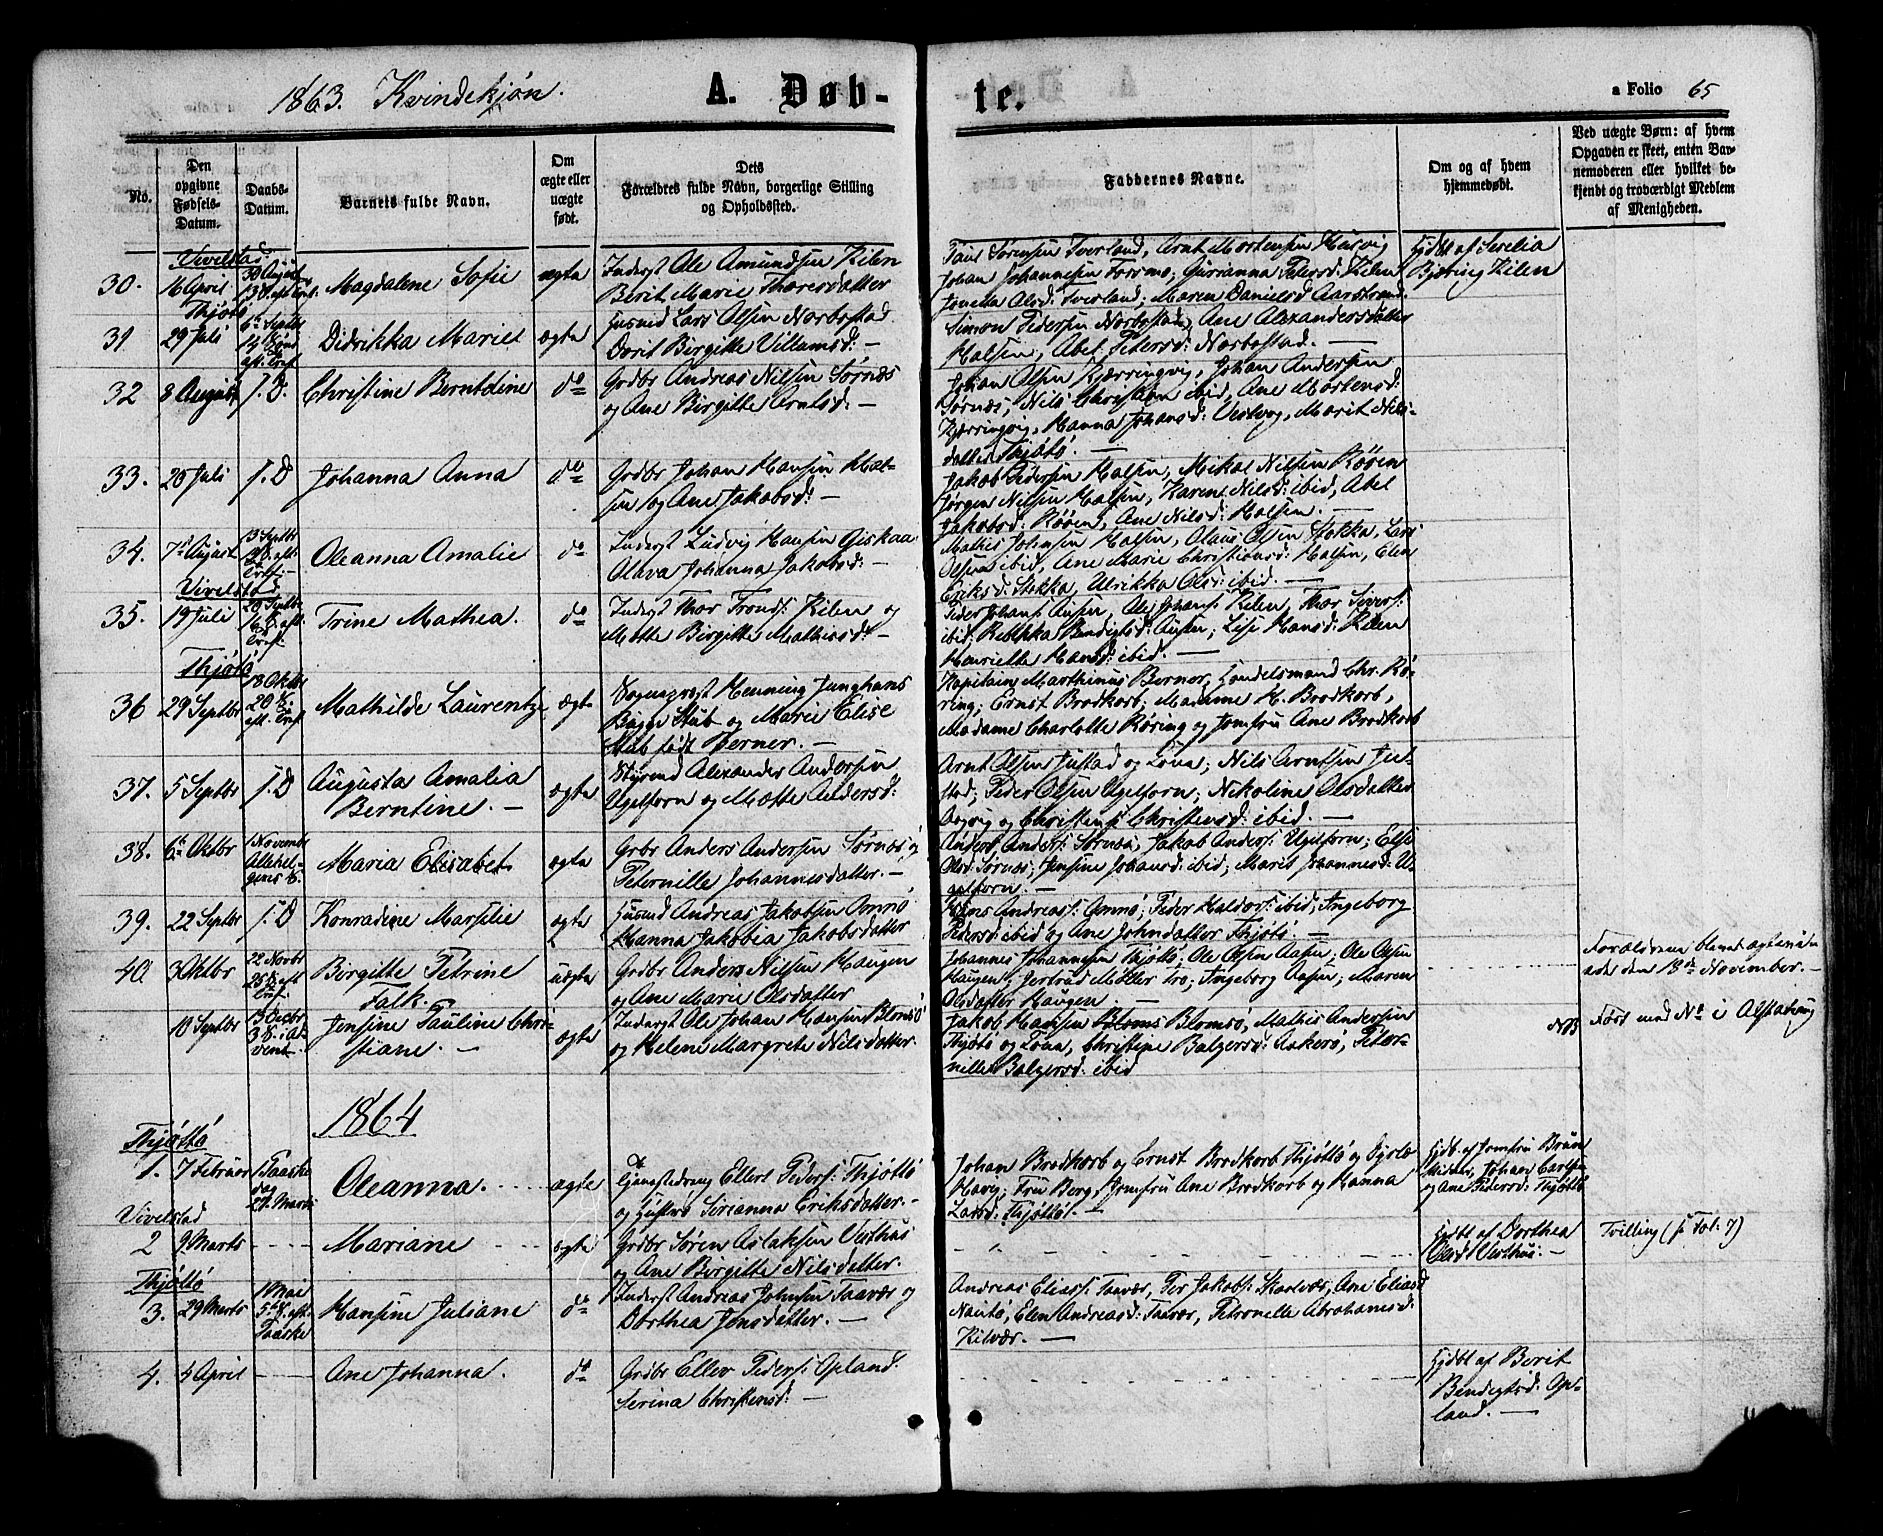 1863. Kvindekjøn.
A. Døb-
te.
a Folio 65
No.
Den
opgivne
Fødsels-
Datum.
Daabs-
Datum.
Barnets fulde Navn.
Om
ægte eller
uægte
født.
Dets
Forældres fulde Navn, borgerlige Stilling
og Opholdssted.
Faddernes Navne.
Om og af hvem
hjemmedøbt.
Ved uægte Børn: af hvem
Opgaven er skeet, enten Bar-
nemoderen eller hvilket be-
kjendt og troværdigt Medlem
af Menigheden.
Vivelstad
30.
16 April
30 August
13 S. eft. Tref.
Magdalene Sofie
ægte
Inderst Ole Amundsen Kilen
Berit Marie Thoresdatter
Paul Sørensen Tverland, Arnt Mortensen Husvig
Johan Johannesen Forsmo, Gurianna Petersd: Kilen
Jonetta Olsd: Tverland; Maren Danielsd Aarstrand.
Hjdbt af: Serelia
Bjøring Kilen
Thjøtø
31
29 Juli
6te Septbr
14 S.
eft. Tref
Didrikka Mariet
ægte
Husmd Lars Olsen Norbostad
Dorit Birgitte Villumsd: —
Simon Pedersen Norbostad, Ane Alexandersdatter
Halsen, Abel Petersd: Norbostad. —
32
8 August
s. D.
Christine Berntoline
do
Grdbr Andreas Nilsen Sørnes
og Ane Birgitte Arntsd: —
Johan Olsen Kjærringvig, Johan Andersen
Sørnæs, Nils Christian ibid, Ane Mortensd:
Kjærringvig, Hanna Johansd: Vestvog, Marit Nils-
datter Thjøtø. —
33.
20 Juli
s. D
Johanna Anna
do
Grdbr Johan Hansen Hal-
sen og Ane Jakobsd: —
Jakob Pedersen Halsen, Mikal Nilsen Røøen
Jørgen Nilsen Halsen, Karen Nilsd: ibid, Abel
Jakobsd: Røøen, Ane Nilsd: Halsen. —
34.
7de August
13 Septbr
Oleanna Amalie
do
Inderst Ludvig Hansen Giskaa
Olava Johanna Jakobsd: —
Mathis Johnsen Halsen, Olaus Olsen Stokka, Lars
Olsen ibid, Ane Marie Christiansd: Halsen, Elen
Eriksd: Stokka, Ulrikka Olsd: ibid. —
Vivelstad
35.
19 Juli
20 Septbr
16 S. eft.
Tref.
Trine Mathea.
do
Inderst Thor Tronds: Kilen og
Mette Birgitte Mathiasd: —
Peder Johans: Ausen, Ole Johans: Kilen, Thor Sivers:
ibid, Rebekka Bendigtsd: Ausen; Lise Hansd: Kilen
Henriette Hansd: ibid. —
Thjøtø
36
29 Septbr
18 Oktbr
20 S.
eft. Tref
Mathilde Laurentze
ægte
Sogneprest Henning Junghans
Bugge Stub og Marie Elise
Stub født Berner. —
Kapitain Marthinus Berner, Handelsmand Chr. Rø-
ring; Ernst Brodkorb; Madame H. Brodkorb,
Madame Charlotte Røring og Jomfru Ane Brodkorb
37.
5 Septbr
s. D
Augusta Amalia
Berntine. —
ægte
Styrmd Alexander Andersen
Ugelforn og Mette Andersd:
Arnt Olsen Justad og Kona; Nils Arntsen Ju-
stad; Peder Olsen Ugelforn; Nikoline Olsdatter
og Christensd: ibid. —
38.
6te Oktbr
1 Novembr
Allehel-
gens S.
Maria Elisabet
ægte
Grbr Anders Andersen Sørnes og
Peternille Johannesdatter. —
Anders Anders: Sørnes, Jakob Anders: Ugelforn; Else
Olsd: Sørnes; Jensine Johansd: ibid; Marit Johannesd: U-
gelforn. —
39.
22 Septbr
s. D
Konradine Marselie
ægte
Husmd Andreas Jakobsen Omnø
Hanna Jakobia Jakobsdatter
Andreas: Omnø; Peder Haldors: ibid; Ingeborg
Pedersd: ibid og Ane Johndatter Thjøtø. —
40
3 Oktbr
22 Novbr
25 S. eft
Tref.
Birgitte Petrine
Falk.
uægte
Grdbr Anders Nilsen Haugen
og Ane Marie Olsdatter
Johannes Johannesen Thjøttø; Ole Olsen Aasen; Ole Olsen
Haugen; Jertrud Møller Tro; Ingeborg Aasen; Maren
Olsdatter Haugen —
Forældrene blevet ægtevi-
ede den 18de November. —
10 Septbr
13 Decbr
3 S. i Ad-
vent.
Jensine Pauline Chri-
stiane. —
ægte
Inderst Ole Johan Hansen Blomsø
og Helene Margrete Nilsdatter.
Jakob Hansen Blomsø, Mathis Andersen
Thjøtø og Kona, Christine Balzersd: Askerø, Peter-
nille Balzersd: ibid
NB
Ført med No i Alstahoug
1864
Thjøttø
1.
7 Februar
1 Paaske
dag
27. Marts
Oleanna.
ægte
Gjæstedreng Ellert Peders: Thjøttø
og Hustru Sørianna Eriksdatter. —
Johan Brodkorb og Ernst Brodkorb Thjøttø og
Havig; Fru Berg, Jomfru Ane Brodkorb og Hanna
Larsd: Thjøttø. —
Hjdb. af Jomfru Brun
og Ane Pedersd: Thjøttø
Vivelstad
2
9 Marts
Mariane
ægte
Grdbr Søren Aslaksen Vesthus
og Ane Birgitte Nilsdatter.
Hjdbt af Dorthea
Olsd Vesthus: —
Tvilling (s. Fol: 7)
Thjøttø
3.
29 Marts
1 Mai
5te S. eft.
Paaske
Hansine Juliane
do
Inderst Andreas Johnsen Taavær og
Dorthea Jensdatter. —
Andreas Elias: Taavær, Per Jakobs: Skarlvær, Ane Eliasd
Nautø, Elen Andreasd: Taavær, Petronelle Abrahamsd:
Kilvær. —
4.
4 April
Ane Johanna.
do
Grdbr Ellev Peders: Opland.
Serina Christensd: —
Hjdbt af Berit
Bendigtsd: Op-
land. —